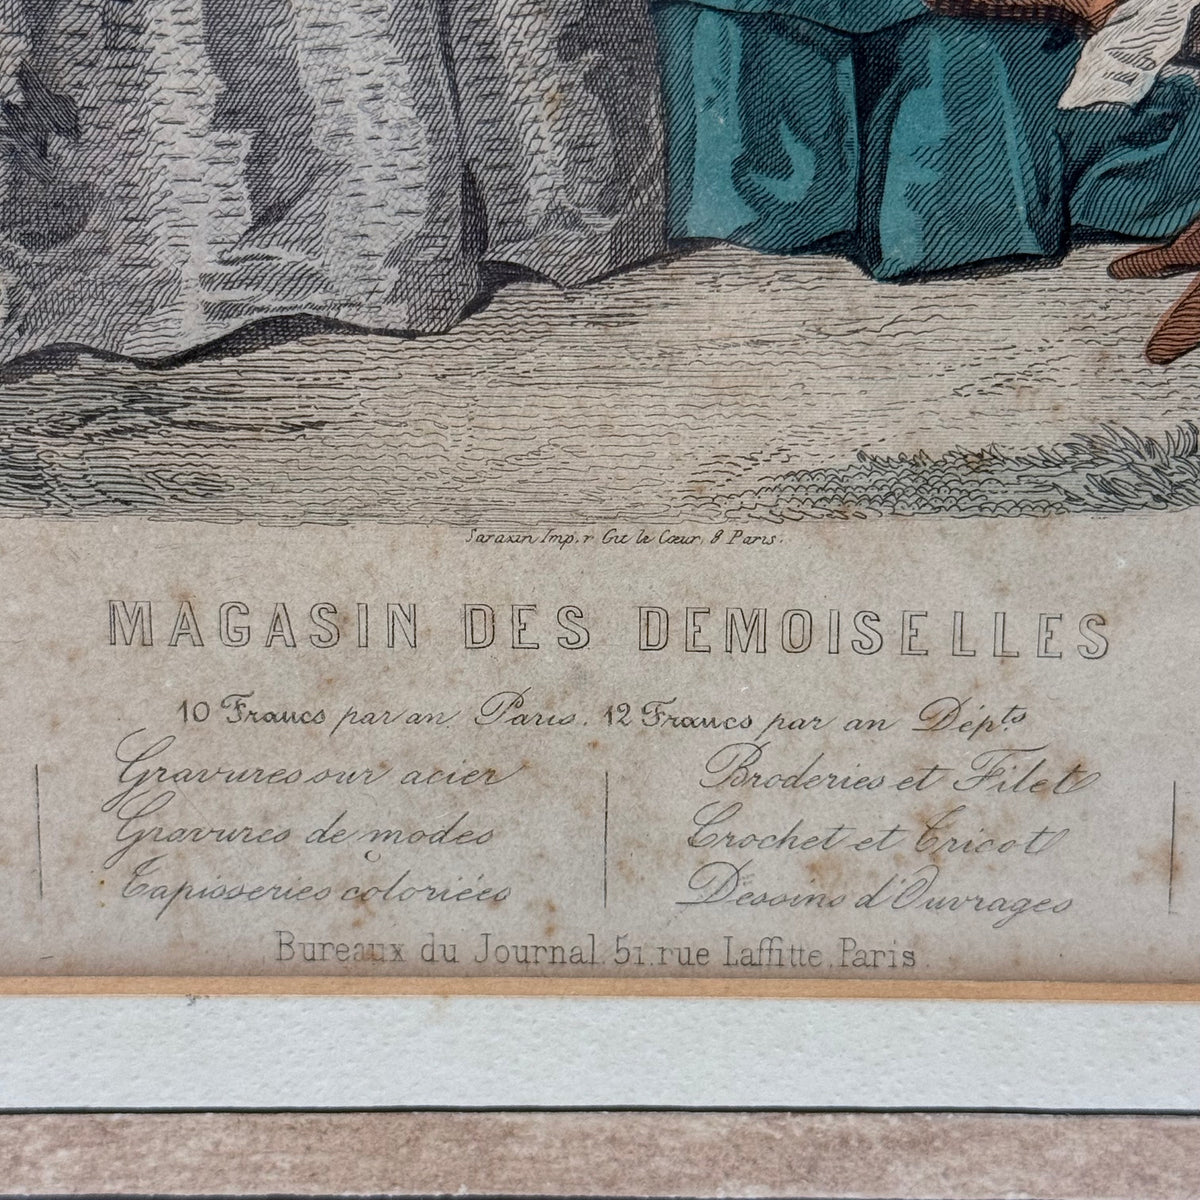 Sarazin Imp. r Gît le Cœur, 8 Paris.
MAGASIN DES DEMOISELLES
10 Francs par an Paris. 12 Francs par an Dépts
Gravures sur acier
Gravures de modes
Tapisseries coloriées
Broderies et Filet
Crochet et Tricot
Dessins d'Ouvrages
Bureaux du Journal. 51. rue Laffitte, Paris.